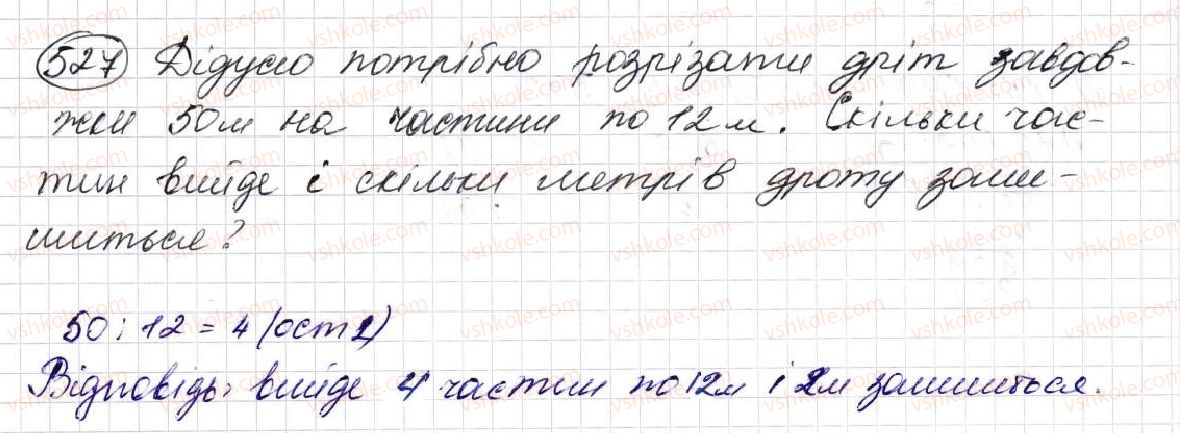 527 Дідусю потрібно розрізати дріт завдов-
жки 50м на частини по 12м. Скільки час-
тин вийде і скільки метрів дроту зали-
шиться?
50 : 12 = 4 (ост 2)
Відповідь: вийде 4 частин по 12м і 2м залишиться.